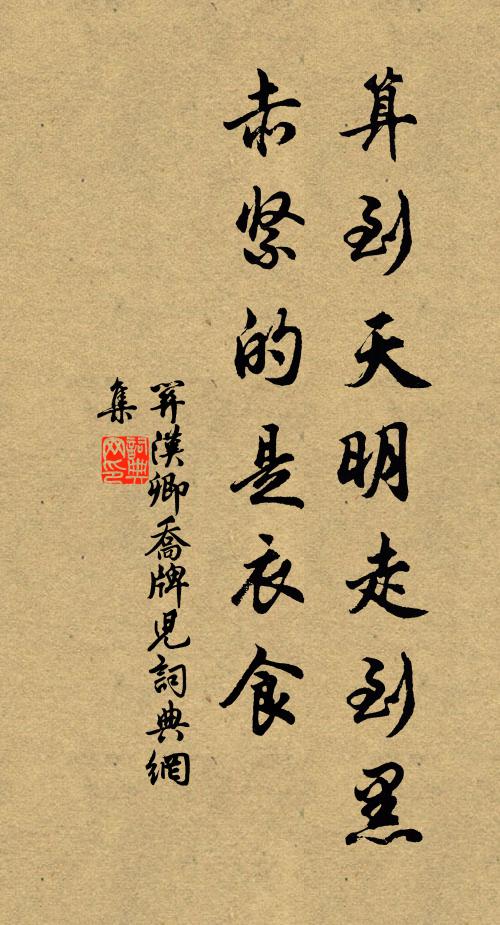 算到天明走到黑
赤緊的是衣食
關漢卿喬牌兒詞典網
集
詞典
网印